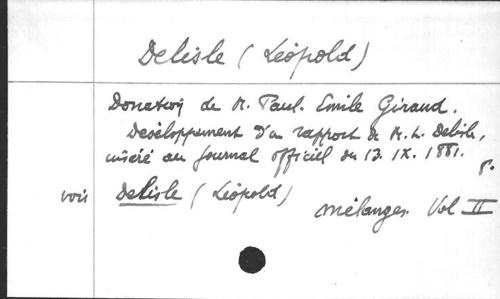 Delisle (Léopold)
Donation de M. Paul. Emile Giraud.
Développement d'un rapport de M. L. Delisle,
inséré au Journal officiel du 13. IX. 1881.
8°.
voir Delisle (Léopold)
Mélanges. Vol II